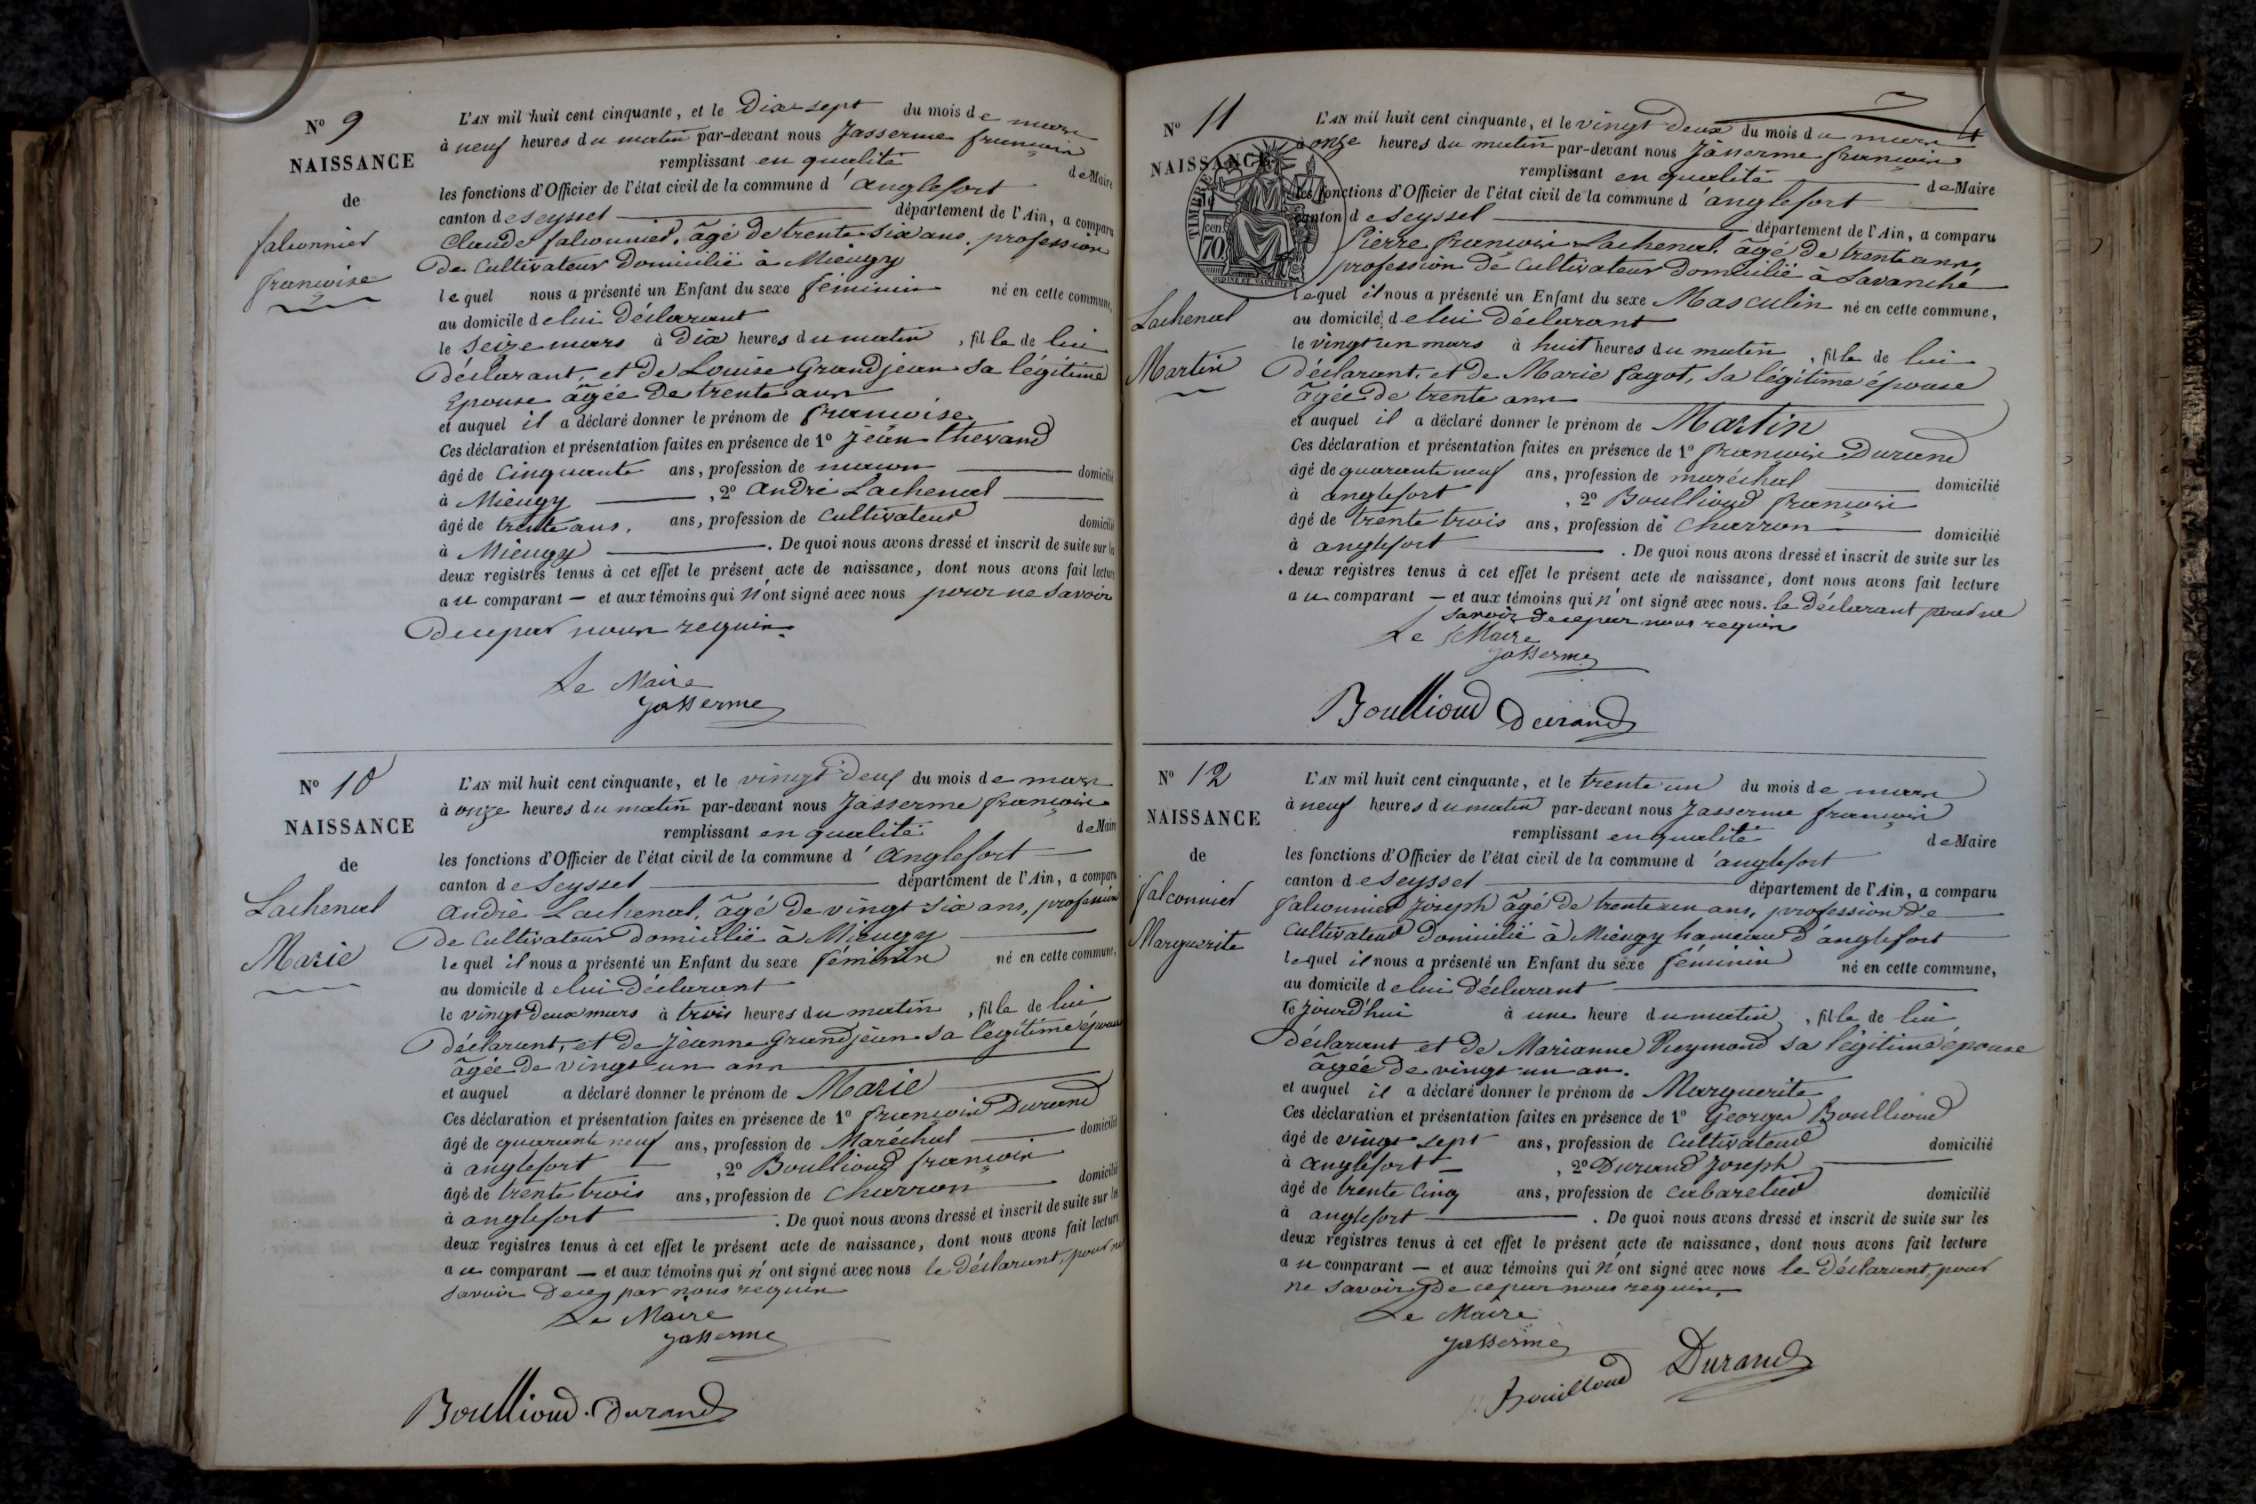 N° 9
NAISSANCE
de
falconnier
françoise
L'AN mil huit cent cinquante, et le Dix sept du mois de mars
à neuf heures du matin par-devant nous Jasserme françois
remplissant en qualité de Maire
les fonctions d'Officier de l'état civil de la commune d'anglefort
canton de Seyssel département de l'Ain, a comparu
Claude falconnier, âgé de trente six ans, profession
De Cultivateur Domicilié à Mieugy
lequel nous a présenté un Enfant du sexe féminin né en cette commune,
au domicile de lui Déclarant
le Seize mars à Dix heures du matin, fille de lui
Déclarant, et de Louise Grandjean sa légitime
Epouse âgée De trente ans
et auquel il a déclaré donner le prénom de françoise
Ces déclaration et présentation faites en présence de 1° Jean thevand
âgé de Cinquante ans, profession de maçon domicilié
à Mieugy, 2° andré Lachenal
âgé de trente ans. ans, profession de Cultivateur domicilié
à Mieugy. De quoi nous avons dressé et inscrit de suite sur les
deux registres tenus à cet effet le présent acte de naissance, dont nous avons fait lecture
au comparant — et aux témoins qui n'ont signé avec nous pour ne Savoir
De ce par nous requis.
Le Maire
Jasserme
N° 10
NAISSANCE
de
Lachenal
Marie
L'AN mil huit cent cinquante, et le vingt deux du mois de mars
à onze heures du matin par-devant nous Jasserme françois
remplissant en qualité de Maire
les fonctions d'Officier de l'état civil de la commune d'Anglefort
canton de Seyssel département de l'Ain, a comparu
André Lachenal, âgé de vingt six ans, profession
De Cultivateur Domicilié à Mieugy
lequel il nous a présenté un Enfant du sexe féminin né en cette commune,
au domicile de lui Déclarant
le vingt Deux mars à trois heures du matin, fille de lui
Déclarant, et de Jeanne Grandjean sa légitime épouse
âgée de vingt un ans
et auquel a déclaré donner le prénom de Marie
Ces déclaration et présentation faites en présence de 1° françois Durand
âgé de quarante neuf ans, profession de Maréchal domicilié
à anglefort, 2° Boullioud françois
âgé de trente trois ans, profession de Charron domicilié
à anglefort. De quoi nous avons dressé et inscrit de suite sur les
deux registres tenus à cet effet le présent acte de naissance, dont nous avons fait lecture
au comparant — et aux témoins qui n'ont signé avec nous le Déclarant, pour ne
Savoir De ce par nous requis
Le Maire
Jasserme
Boullioud. Durand
N° 11
NAISSANCE
TIMBRE
70 cen
Lachenal
Martin
L'AN mil huit cent cinquante, et le vingt Deux du mois de mars
à onze heures du matin par-devant nous Jasserme françois
remplissant en qualité de Maire
les fonctions d'Officier de l'état civil de la commune d'anglefort
canton de Seyssel département de l'Ain, a comparu
Pierre françois Lachenal, âgé de trente ans
profession de Cultivateur Domicilié à Lavanche
lequel il nous a présenté un Enfant du sexe Masculin né en cette commune,
au domicile de lui Déclarant
le vingt un mars à huit heures du matin, fil le de lui
Déclarant, et de Marie fagot, Sa légitime épouse
âgée de trente ans
et auquel il a déclaré donner le prénom de Martin
Ces déclaration et présentation faites en présence de 1° françois Durand
âgé de quarante neuf ans, profession de maréchal domicilié
à anglefort, 2° Boullioud françois
âgé de trente trois ans, profession de Charron domicilié
à anglefort. De quoi nous avons dressé et inscrit de suite sur les
deux registres tenus à cet effet le présent acte de naissance, dont nous avons fait lecture
au comparant — et aux témoins qui n'ont signé avec nous. le Déclarant pour ne
Savoir De ce par nous requis
Le Maire
Jasserme
Boullioud Durand
N° 12
NAISSANCE
de
falconnier
Marguerite
L'AN mil huit cent cinquante, et le trente un du mois de mars
à neuf heures du matin par-devant nous Jasserme françois
remplissant en qualité de Maire
les fonctions d'Officier de l'état civil de la commune d'anglefort
canton de Seyssel département de l'Ain, a comparu
falconnier Joseph âgé de trente un ans, profession de
Cultivateur Domicilié à Mieugy hameau d'anglefort
lequel il nous a présenté un Enfant du sexe féminin né en cette commune,
au domicile de lui Déclarant
le jourd'hui à une heure du matin, fille de lui
Déclarant et de Marianne Reymond sa légitime épouse
âgée De vingt un an.
et auquel il a déclaré donner le prénom de Marguerite
Ces déclaration et présentation faites en présence de 1° Georges Boullioud
âgé de vingt sept ans, profession de Cultivateur domicilié
à Anglefort, 2° Durand Joseph
âgé de trente Cinq ans, profession de Cabaretier domicilié
à anglefort. De quoi nous avons dressé et inscrit de suite sur les
deux registres tenus à cet effet le présent acte de naissance, dont nous avons fait lecture
au comparant — et aux témoins qui n'ont signé avec nous le Déclarant, pour
ne Savoir De ce par nous requis.
Le Maire
Jasserme
Bouilloud Durand